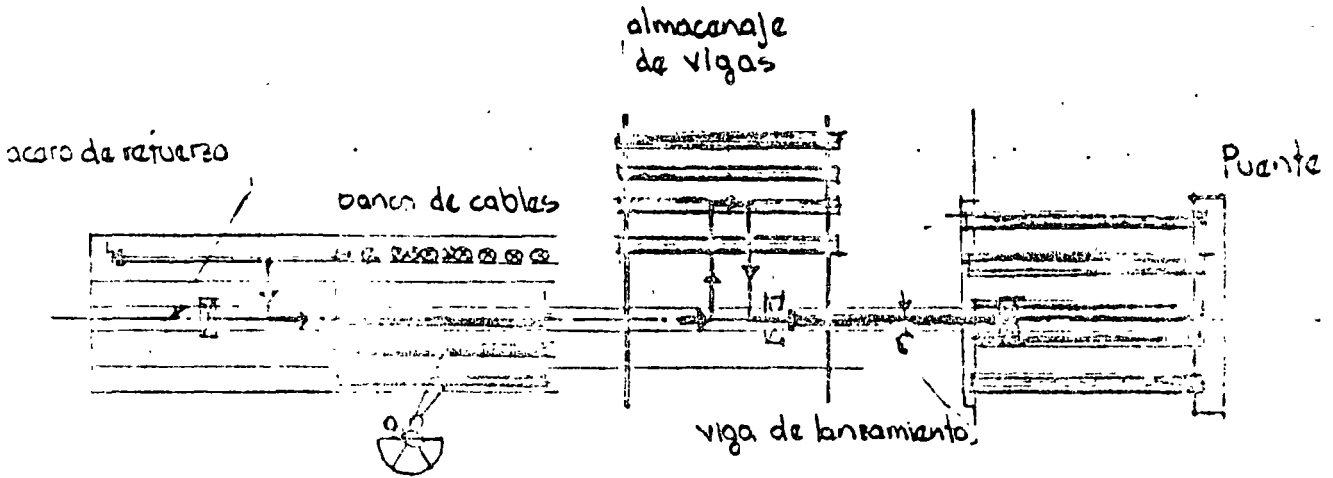 almacenaje
de vigas
acero de refuerzo
banco de cables
Puente
viga de lanzamiento